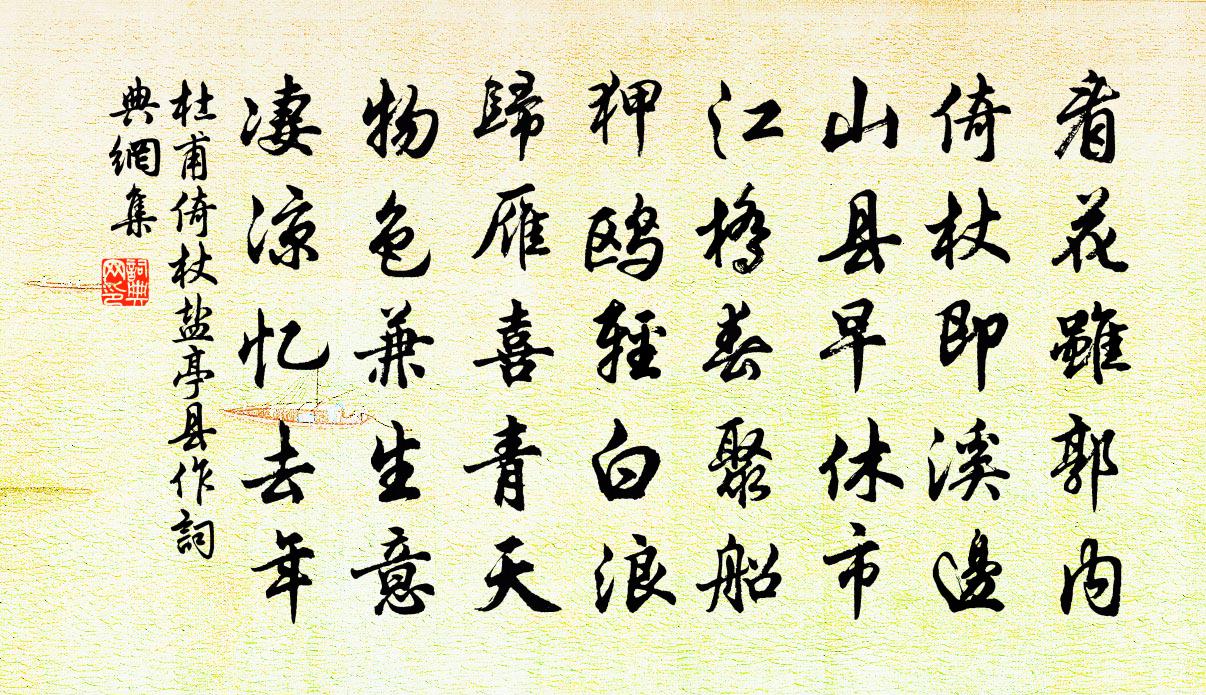 看花雖郭内
倚杖即溪邊
山县早休市
江橋春聚船
狎鸥輕白浪
歸雁喜青天
物色兼生意
凄凉忆去年
杜甫倚杖盐亭县作詞
典網集
詞典网印